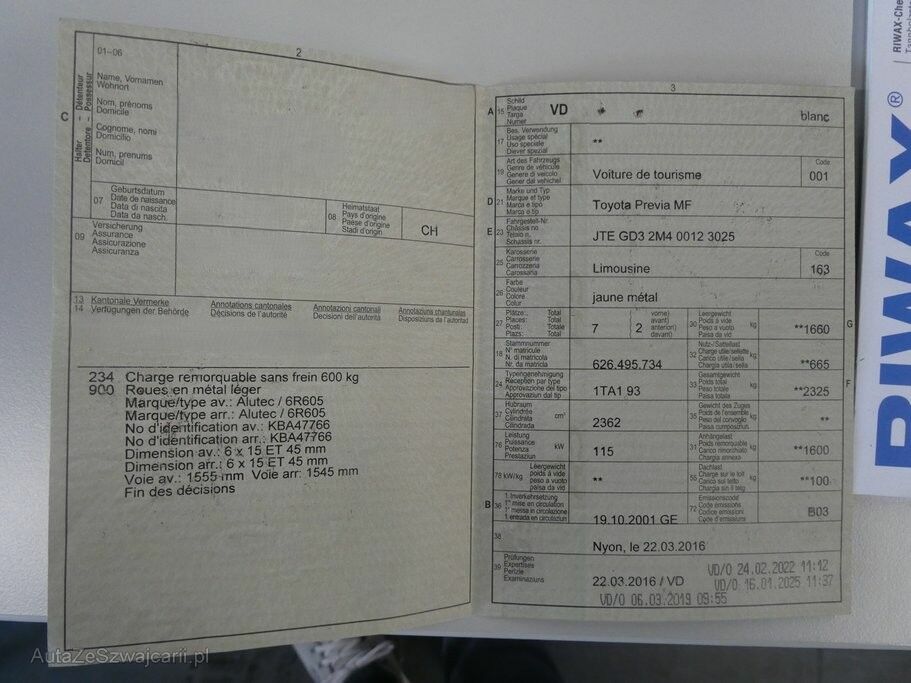 2
01-06
C
Halter – Détenteur
Detentore – Possessur
Name, Vornamen
Wohnort
Nom, prénoms
Domicile
Cognome, nomi
Domicilio
Num, prenums
Domicil
07
Geburtsdatum
Date de naissance
Data di nascita
Data da nasch.
08
Heimatstaat
Pays d'origine
Paese d'origine
Stadi d'origin
CH
09
Versicherung
Assurance
Assicurazione
Assicuranza
13
14
Kantonale Vermerke
Verfügungen der Behörde
Annotations cantonales
Décisions de l'autorité
Annotazioni cantonali
Decisioni dell'autorità
Annotaziuns chantunalas
Disposiziuns da l'autoritad
234 Charge remorquable sans frein 600 kg
900 Roues en métal léger
Marque/type av.: Alutec / 6R605
Marque/type arr.: Alutec / 6R605
No d'identification av.: KBA47766
No d'identification arr.: KBA47766
Dimension av.: 6 x 15 ET 45 mm
Dimension arr.: 6 x 15 ET 45 mm
Voie av.: 1555 mm Voie arr: 1545 mm
Fin des décisions
3
A 15
Schild
Plaque
Targa
Numer
VD
blanc
17
Bes. Verwendung
Usage spécial
Uso speciale
Diever spezial
**
19
Art des Fahrzeugs
Genre de véhicule
Genere di veicolo
Gener dal vehichel
Voiture de tourisme
Code
001
D 21
Marke und Typ
Marque et type
Marca e tipo
Marca e tip
Toyota Previa MF
E 23
Fahrgestell-Nr.
Châssis no
Telaio n.
Schassis nr.
JTE GD3 2M4 0012 3025
25
Karosserie
Carrosserie
Carrozzeria
Carossaria
Limousine
Code
163
26
Farbe
Couleur
Colore
Colur
jaune métal
27
Plätze: Total
Places: Total
Posti: Totale
Plazs: Total
7
2
vorne)
avant)
anteriori)
davant)
30
Leergewicht
Poids à vide
Peso a vuoto
Paisa da vid
kg
**1660
G
18
Stammnummer
N° matricule
N. di matricola
Nr. da matricla
626.495.734
32
Nutz-/Sattellast
Charge utile/sellette
Carico utile/sella
Chargia utila/sella
kg
**665
24
Typengenehmigung
Réception par type
Approvazione del tipo
Approvaziun dal tip
1TA1 93
33
Gesamtgewicht
Poids total
Peso totale
Paisa totala
kg
**2325
F
37
Hubraum
Cylindrée
Cilindrata
Cilindrada
cm³
2362
35
Gewicht des Zuges
Poids de l'ensemble
Peso del convoglio
Paisa cumposiziun
kg
**
76
Leistung
Puissance
Potenza
Prestaziun
kW
115
31
Anhängelast
Poids remorquable
Carico rimorchiato
Chargia annexa
kg
**1600
78 kW/kg
Leergewicht
poids à vide
peso a vuoto
paisa da vid
**
55
Dachlast
Charge sur le toit
Carico sul tetto
Chargia sin il tetg
kg
**100
B 36
1. Inverkehrsetzung
1re mise en circulation
1a messa in circolazione
1. entrada en circulaziun
19.10.2001 GE
72
Emissionscode
Code émissions
Codice emissioni
Code d'emissiuns
B03
38
Nyon, le 22.03.2016
39
Prüfungen
Expertises
Perizie
Examinaziuns
22.03.2016 / VD
VD/O 24.02.2022 11:12
VD/O 16.01.2025 11:37
VD/O 06.03.2019 09:55
RIWAX-Che
RIWAX®
AutaZeSzwajcarii.pl